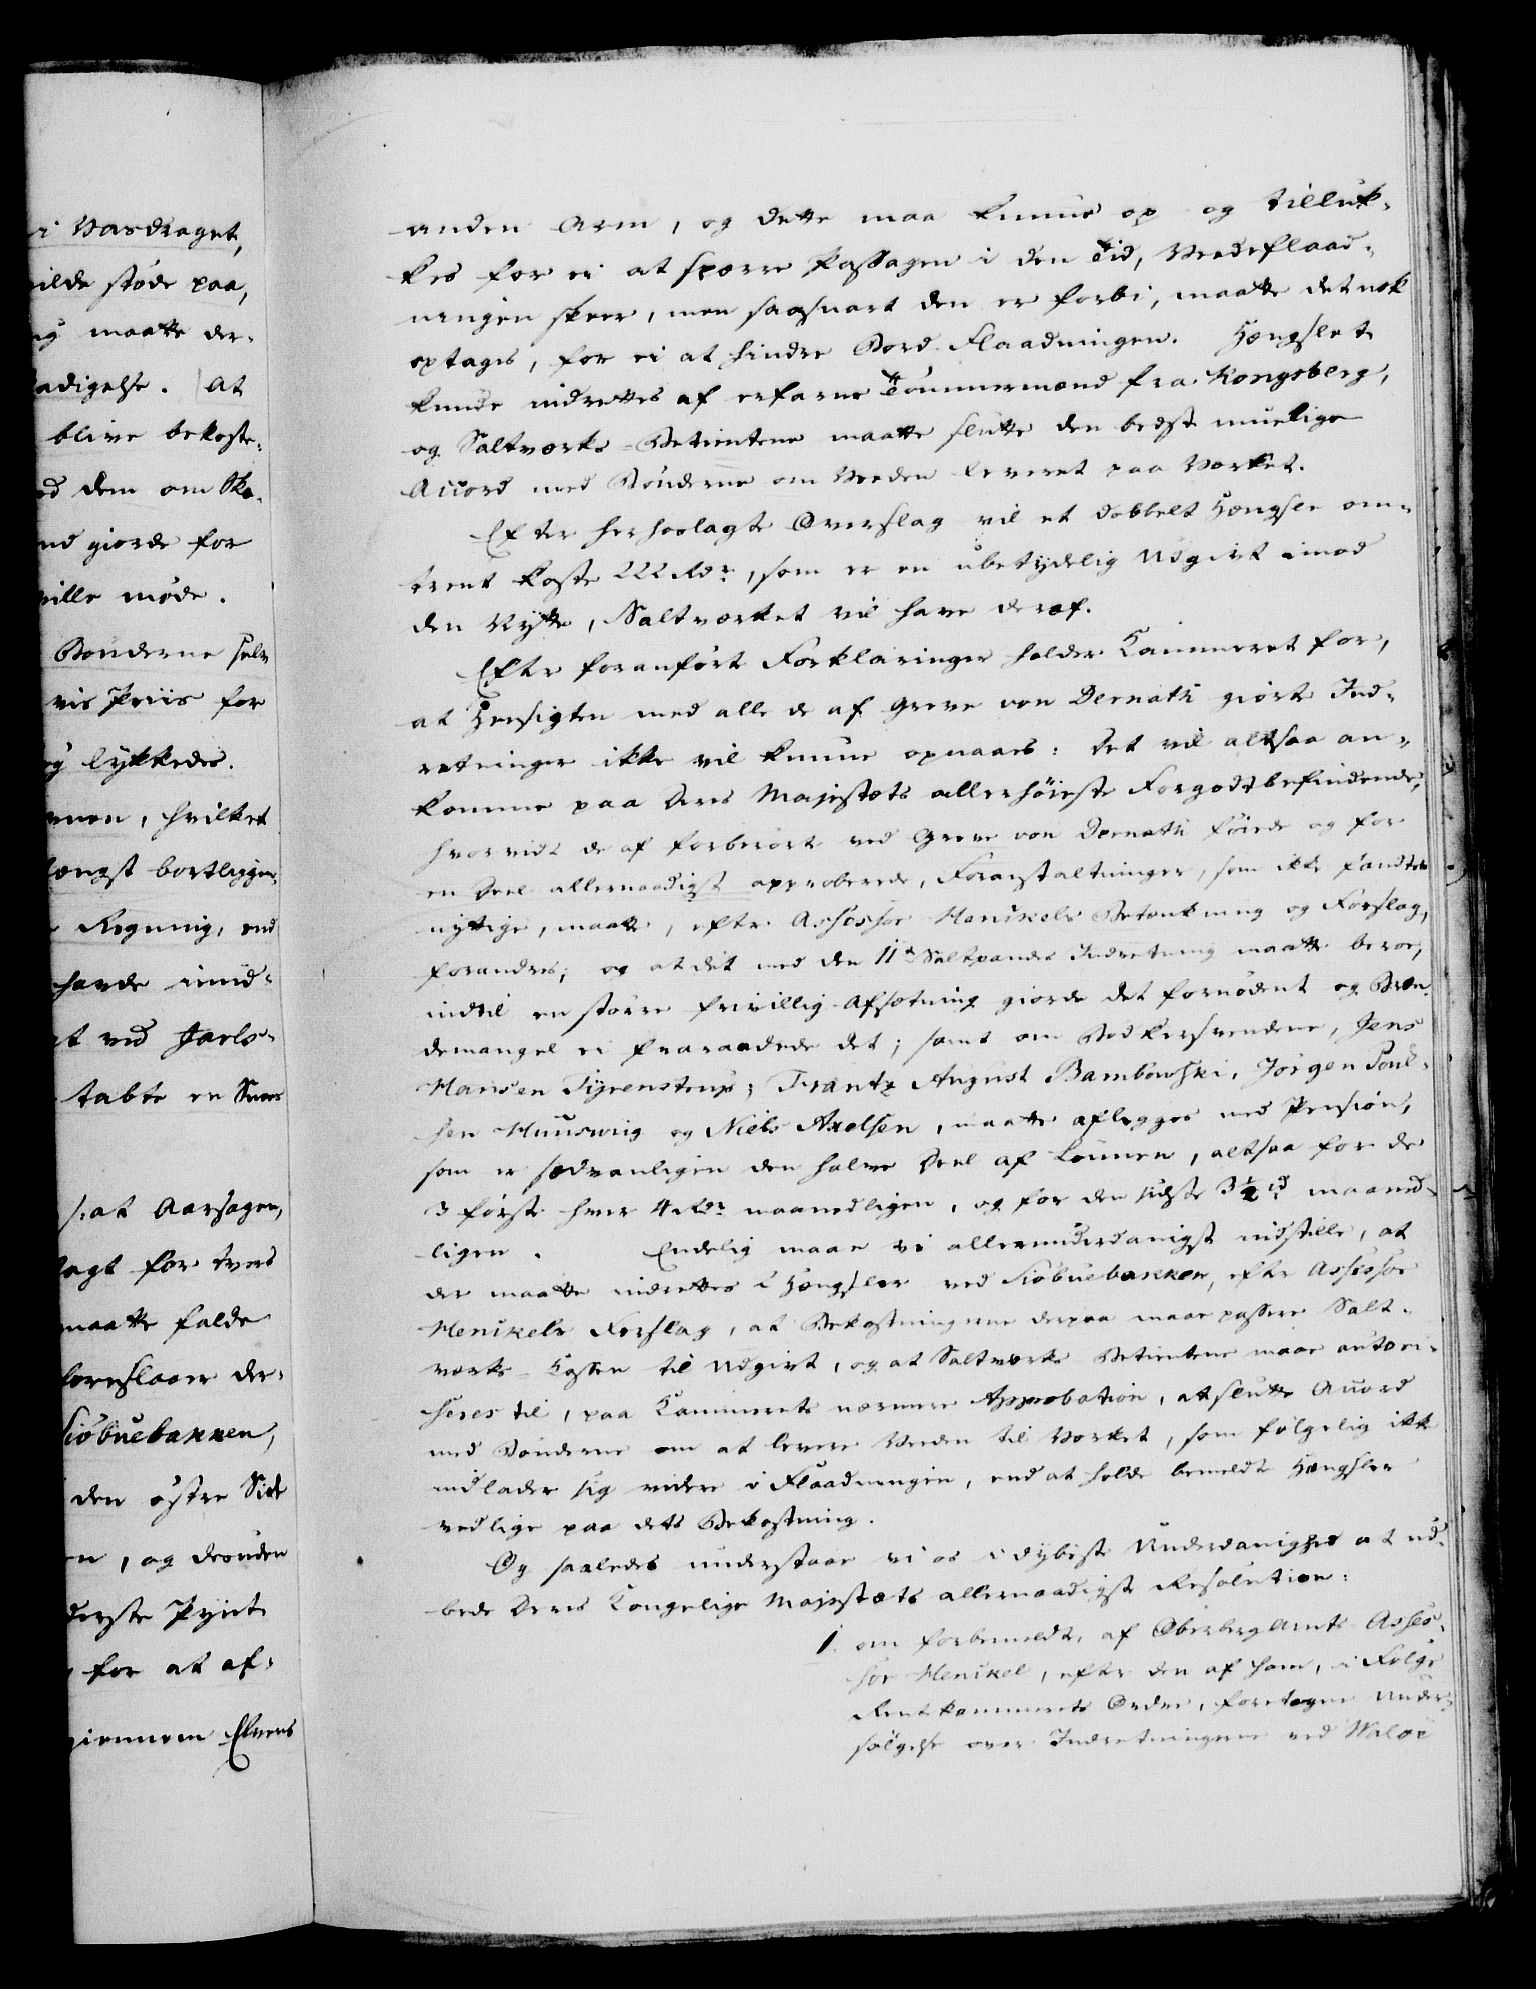 i Vasdraget,
vilde støde paa,
ng maatte der-
adigelse. At
blive bekoste-
ed dem om Ska-
nd giorde for
ville møde.
Bønderne selv
vis Priis for
og lykkedes.
hvilket
længst bortliggen-
Regning, end
havde imid-
et ved Jarls-
tabte en
at Aarsagen,
lagt for tvers
maatte falde
foreslaaer der-
Siøbuebakken,
den østre Side
en, og desuden
derste Pynt
for at af-
giennem Elvens
anden Arm, og dette maa kunne op og tilluk-
kes for ei at spærre Passagen i den Tid, Vedeflaad-
ningen skeer, men saasnart den er forbi, maatte det nok
optages, for ei at hindre Bord Flaadningen. Hængslet
kunde indrettes af erfarne Tømmermænd fra Kongsberg,
og Saltværks-Betientene maatte slutte den bedst muelige
Accord med Bønderne om Veeden leveret paa Værket.
Efter herhoslagte Overslag vil et dobbelt Hængsle om-
trent koste 222 Rdr, som er en ubetydelig Udgivt imod
den Nytte, Saltværket vil have deraf.
Efter foranførte Forklaringer holder Kammeret for,
at Hensigten med alle de af Greve von Dernath giørte Ind-
retninger ikke vil kunne opnaaes: det vil altsaa an-
komme paa Deres Majestæts allerhøieste Forgodtbefindende,
hvorvidt de af forberørte ved Greve von Dernath føiede og for
en Deel allernaadigst approberede, Foranstaltninger, som ikke fandtes
nyttige, maatte, efter Assessor Henckels Betænkning og Forslag,
forandres; og at det med den 11te Saltpandes Indretning maatte beroe,
indtil en større frivillig Afsætning giorde det fornødent og Bræn-
demangel ei fraraadede det; samt om Bødkersvendene, Jens
Hansen Tyrenstrup, Frantz August Bambowski, Jørgen Poul-
sen Huuswiig og Niels Axelsen, maatte aflegges med Pension,
som er sædvanligen den halve Deel af Lønnen, altsaa for de
3 første hver 4 Rdr maanedligen, og for den sidste 3½ rd maaned-
ligen. Endelig maae vi allerunderdanigst indstille, at
der maatte indrettes 2 Hængsler ved Siøbuebakken, efter Assessor
Henckels Forslag, at Bekostningerne derpaa maae passere Salt-
værks-Cassen til Udgivt, og at Saltværks Betientene maae autori-
seres til, paa Kammerets nærmere Approbation, at slutte Accord
med Bønderne om at levere Veeden til Værket, som følgelig ikke
indlader sig videre i Flaadningen, end at holde bemeldte Hængsler
vedlige paa dets Bekostning.
Og saaledes understaae vi os i dybeste Underdanighed at ud-
bede Deres Kongelige Majestæts allernaadigste Resolution:
1. om forbemeldte, af Oberbergamts Asses-
sor Henckel, efter den af ham, i Følge
Rentkammerets Ordre, foretagne Under-
søgelse over Indretningerne ved Waløe